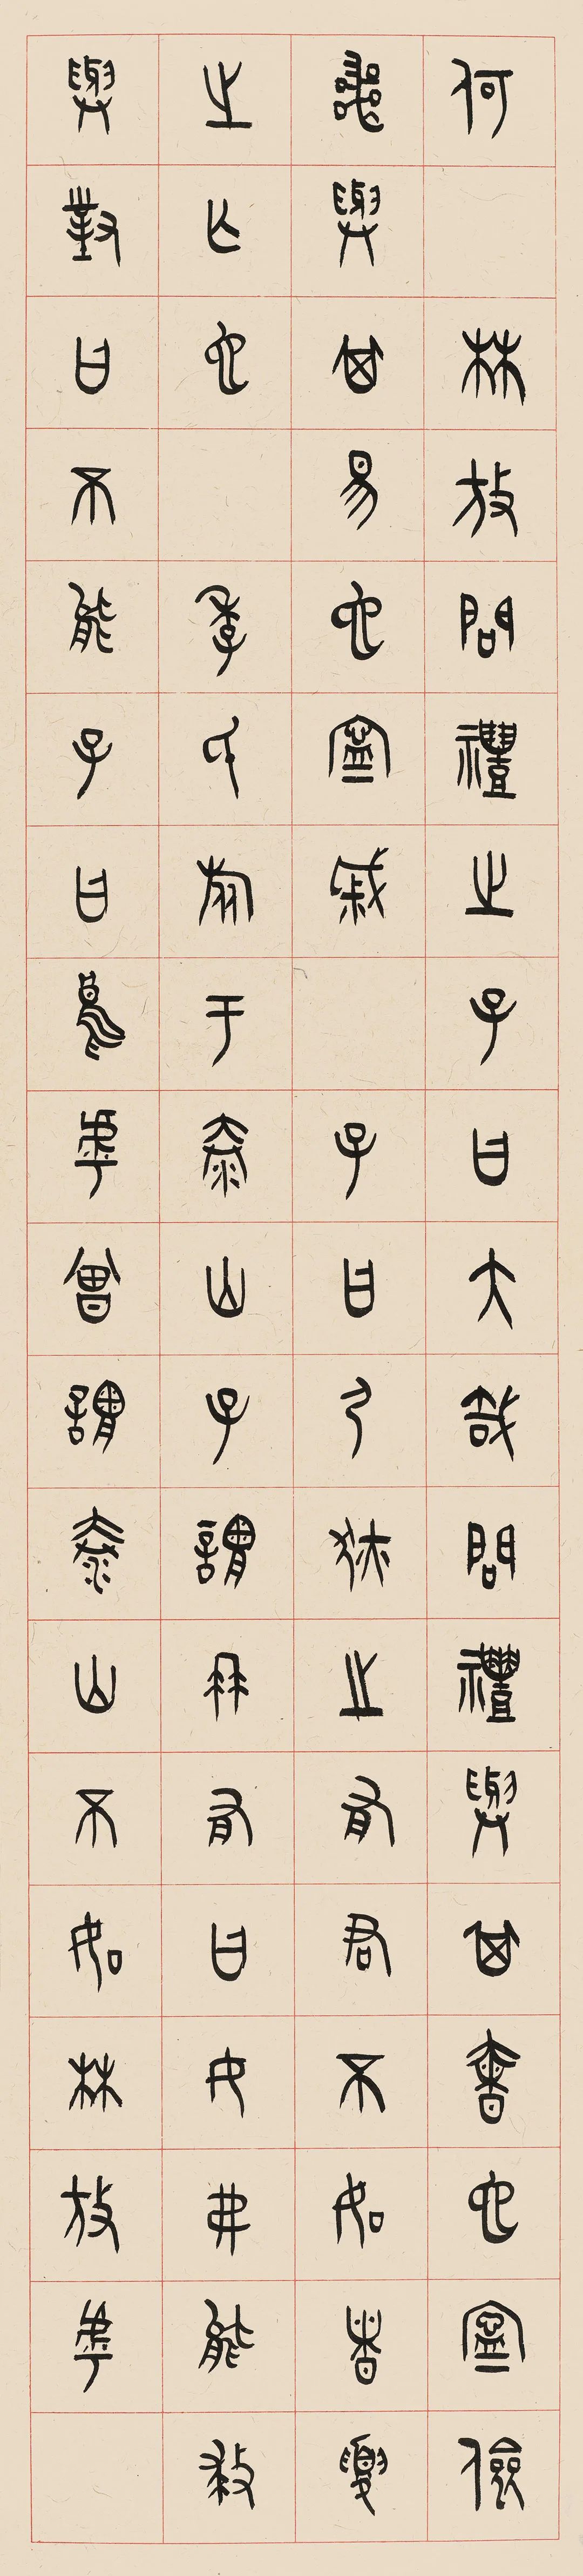 何 林放問禮之子曰大哉問禮與其奢也寧儉
喪與其易也寧戚 子曰夷狄之有君不如諸夏
之亡也 季氏旅于泰山子謂冉有曰女弗能救
與對曰不能子曰烏乎曾謂泰山不如林放乎